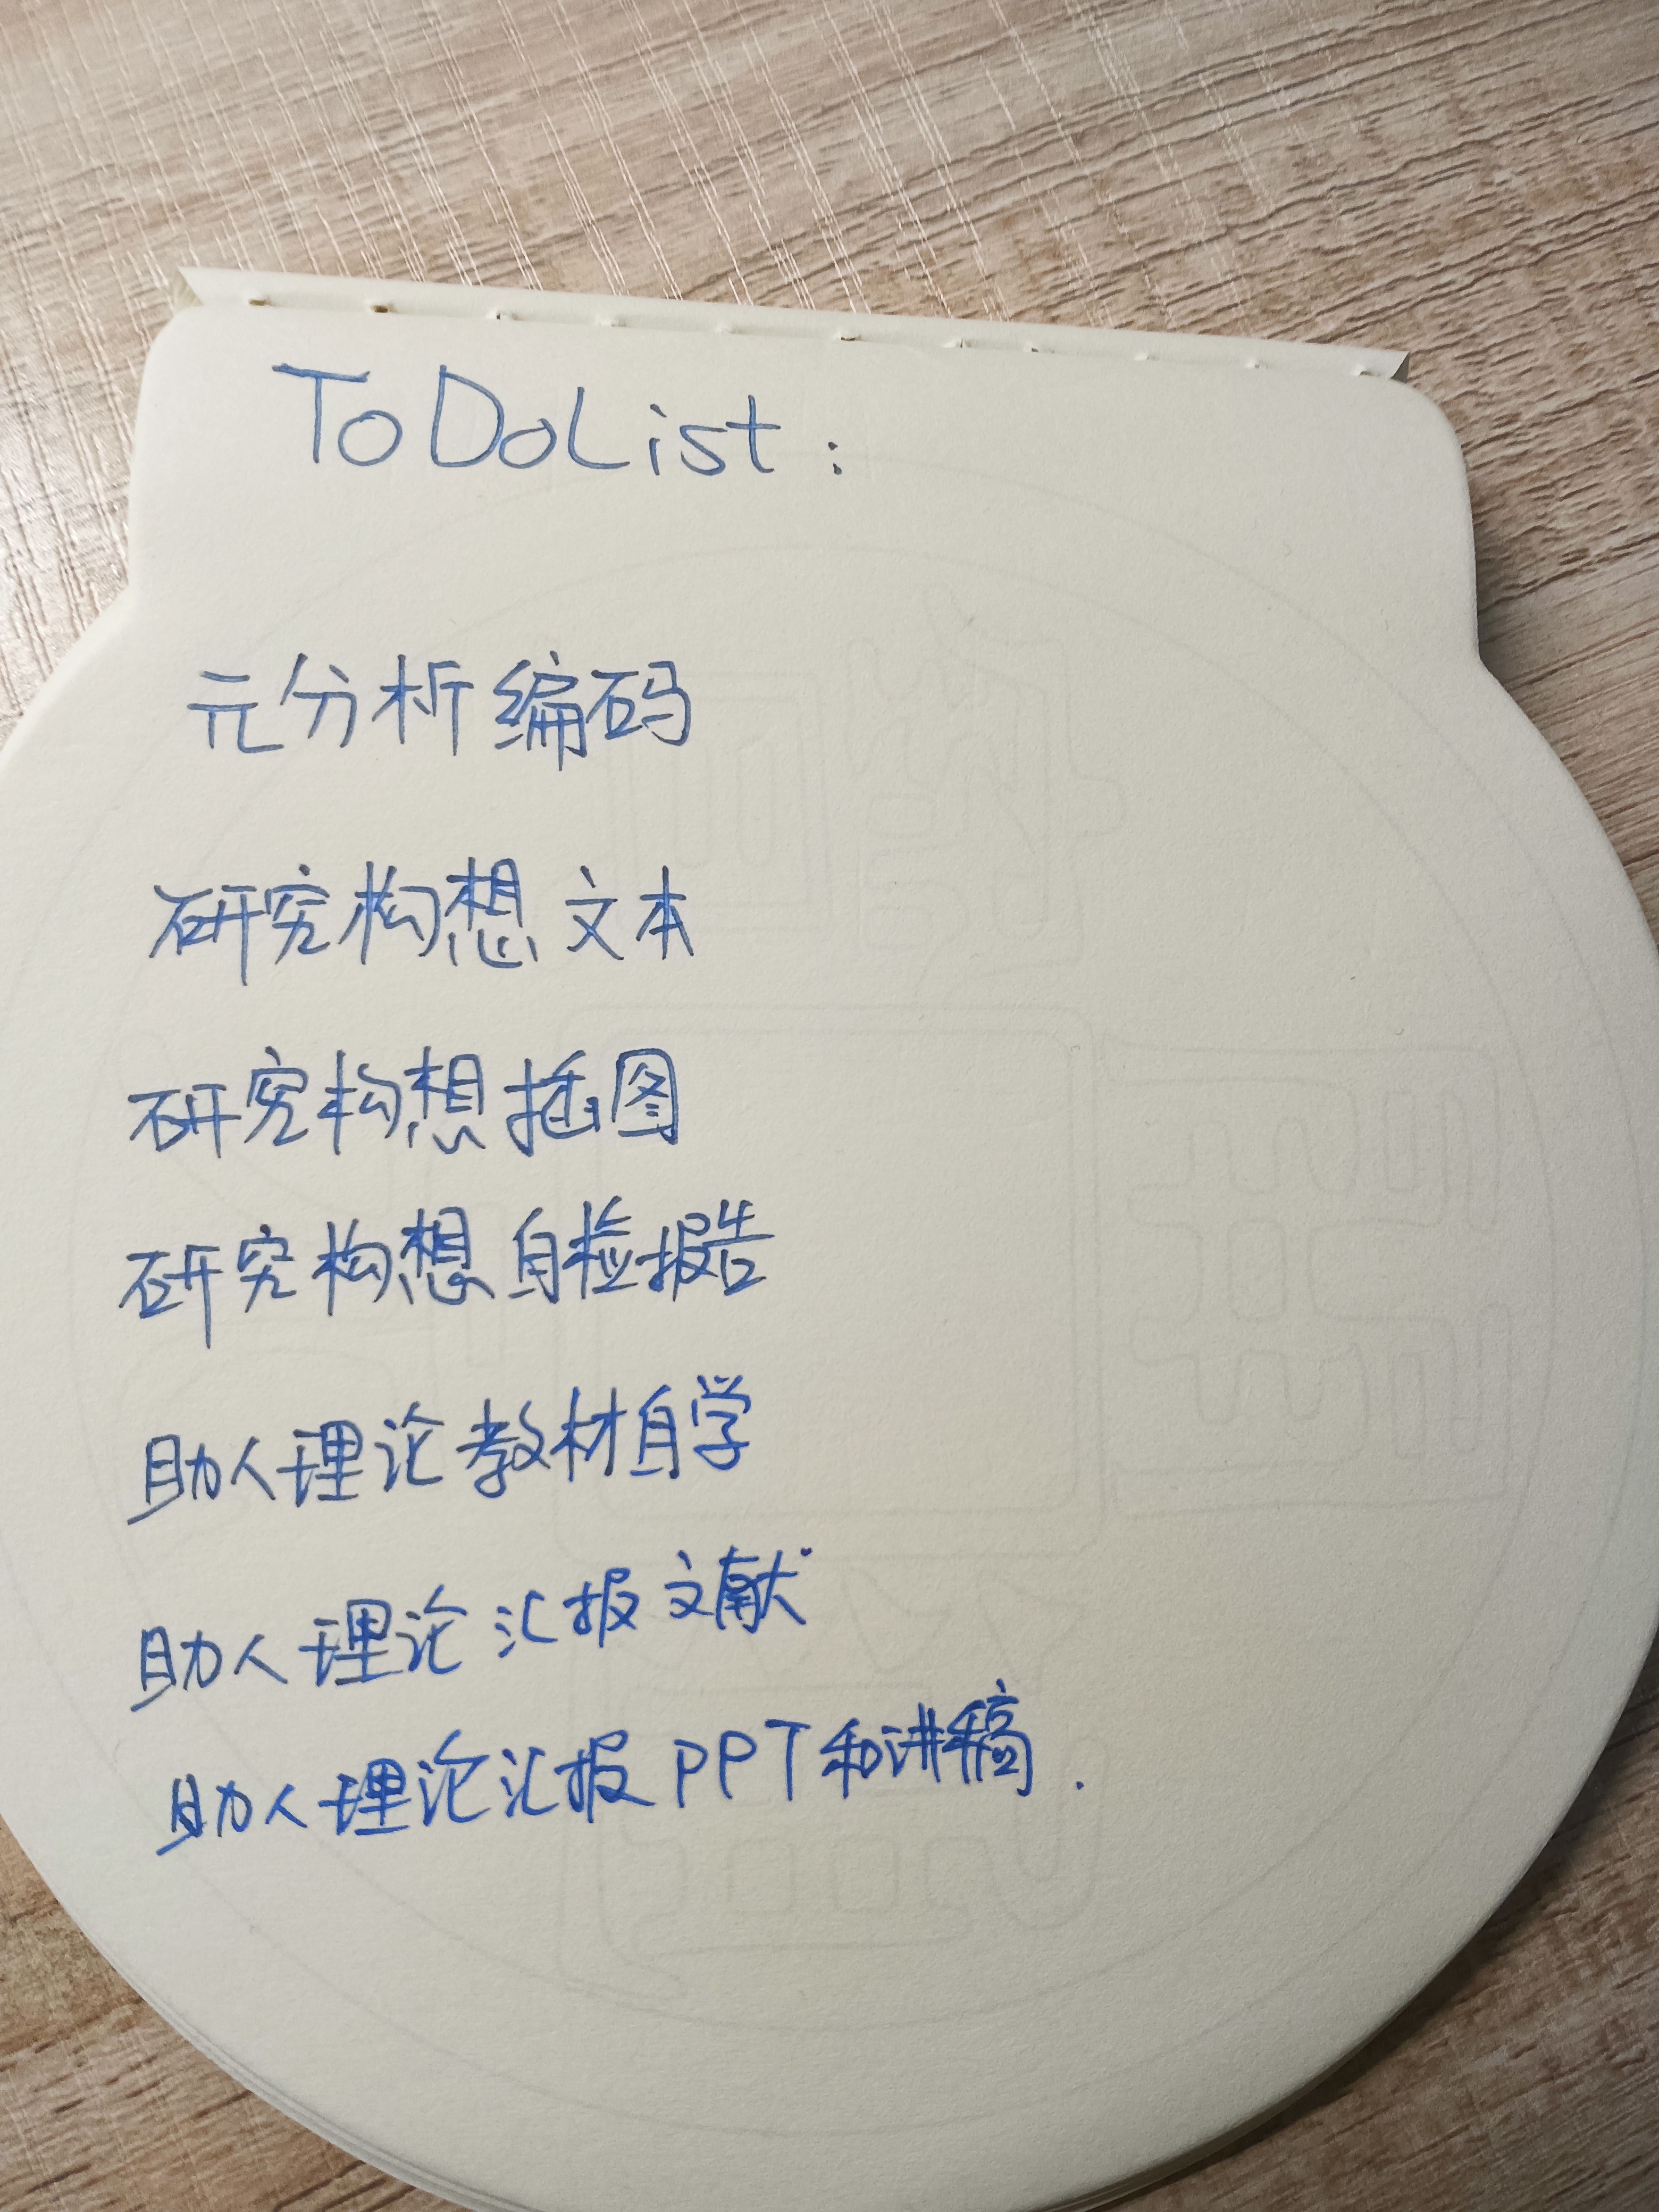 ToDoList:
元分析编码
研究构想文本
研究构想插图
研究构想自检报告
助人理论教材自学
助人理论汇报文献
助人理论汇报PPT和讲稿.